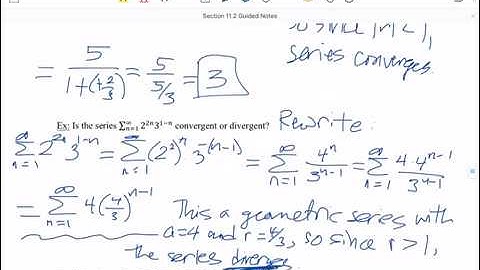 Section 11.2 Guided Notes
so since |r| < 1,
series converges.
= 5/(1+(+2/3)) = 5/(5/3) = 3
Ex: Is the series ∑_{n=1}^{∞} 2^{2n}3^{1−n} convergent or divergent? Rewrite:
∑_{n=1}^{∞} 2^{2n} 3^{1-n} = ∑_{n=1}^{∞} (2^2)^n 3^{-(n-1)} = ∑_{n=1}^{∞} 4^n/3^{n-1} = ∑_{n=1}^{∞} 4·4^{n-1}/3^{n-1}
= ∑_{n=1}^{∞} 4(4/3)^{n-1} This a geometric series with
a=4 and r=4/3, so since r>1,
the series diverges